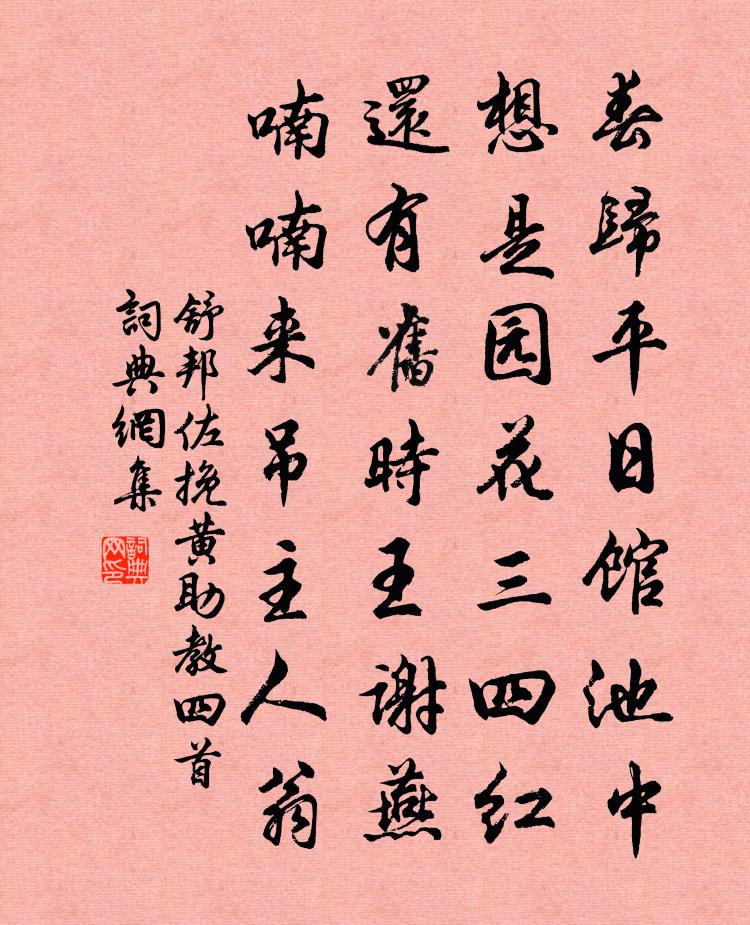 春歸平日館池中
想是园花三四红
還有舊時王謝燕
喃喃来吊主人翁
舒邦佐挽黄助教四首
詞典網集
詞典
网印